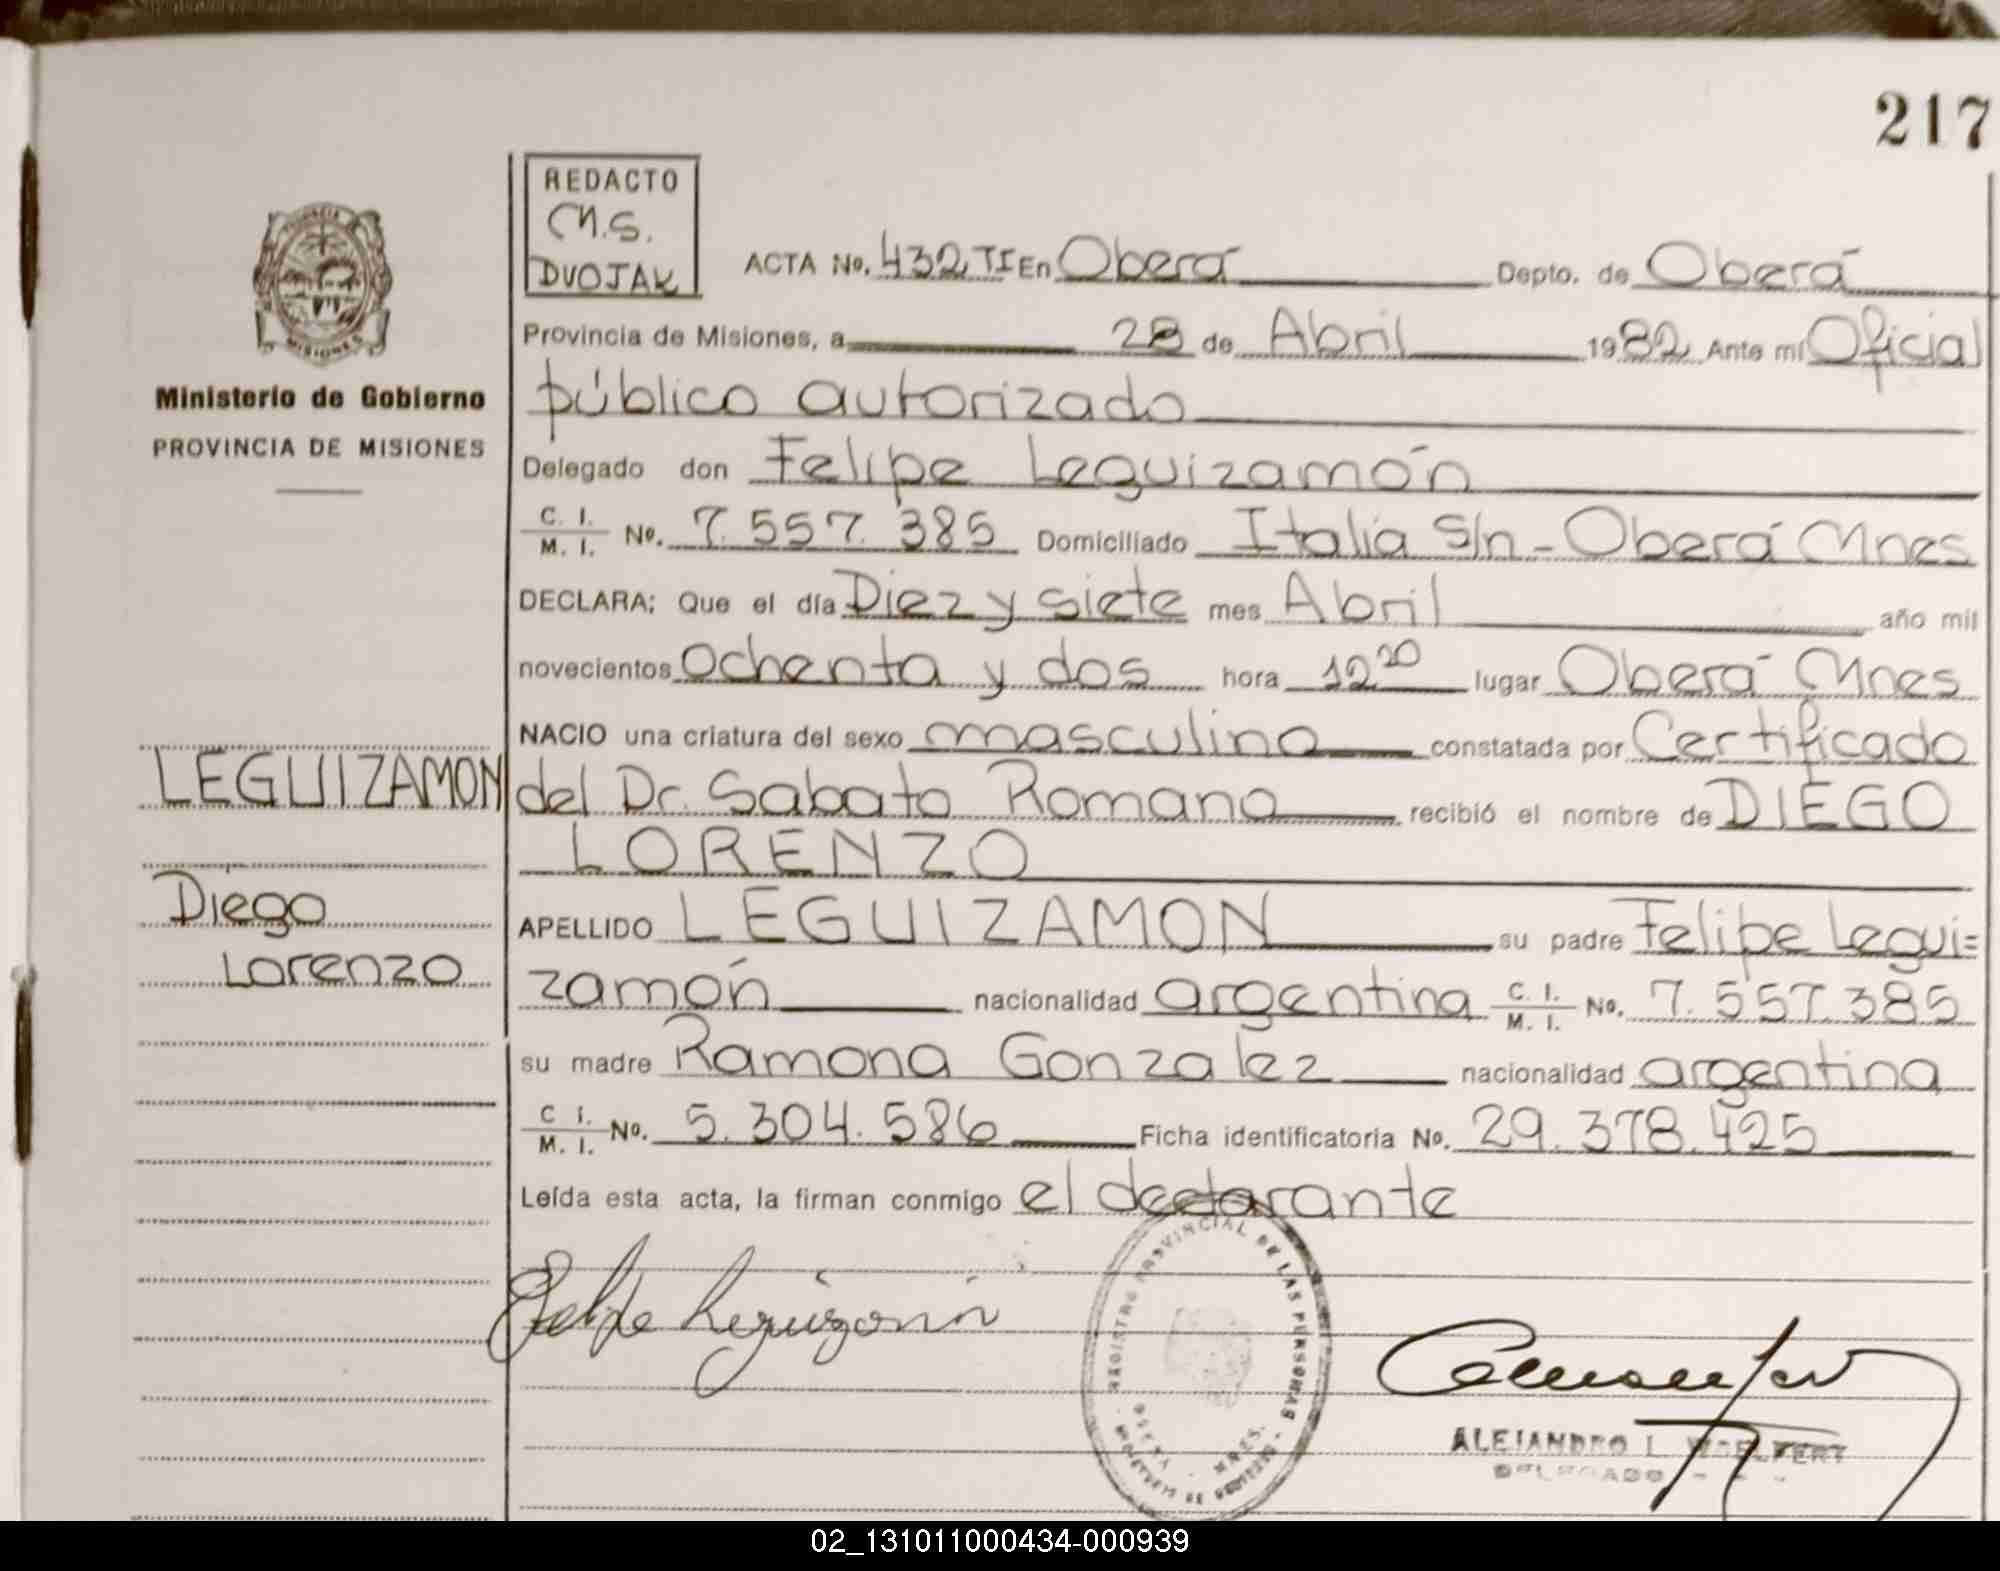 217
REDACTO
M.S.
DVOJAK
ACTA No. 432 TI En Oberá Depto. de Oberá
Provincia de Misiones, a 28 de Abril 1982 Ante mí Oficial
público autorizado
Delegado don Felipe Leguizamón
C. I. / M. I. No. 7.557.385 Domiciliado Italia S/n - Oberá Mnes
DECLARA: Que el día Diez y siete mes Abril año mil
novecientos ochenta y dos hora 12 20 lugar Oberá Mnes
NACIO una criatura del sexo masculino constatada por Certificado
del Dr. Sabato Romano recibió el nombre de DIEGO
LORENZO
APELLIDO LEGUIZAMON su padre Felipe Legui=
zamón nacionalidad argentina C. I. / M. I. No. 7.557.385
su madre Ramona Gonzalez nacionalidad argentina
C I. / M. I. No. 5.304.586 Ficha identificatoria No. 29.378.425
Leída esta acta, la firman conmigo el declarante
Felipe Leguizamón
REGISTRO PROVINCIAL DE LAS PERSONAS
MNES.
ALEJANDRO L.
DELEGADO
MISIONES
Ministerio de Gobierno
PROVINCIA DE MISIONES
LEGUIZAMON
Diego
Lorenzo
02_131011000434-000939